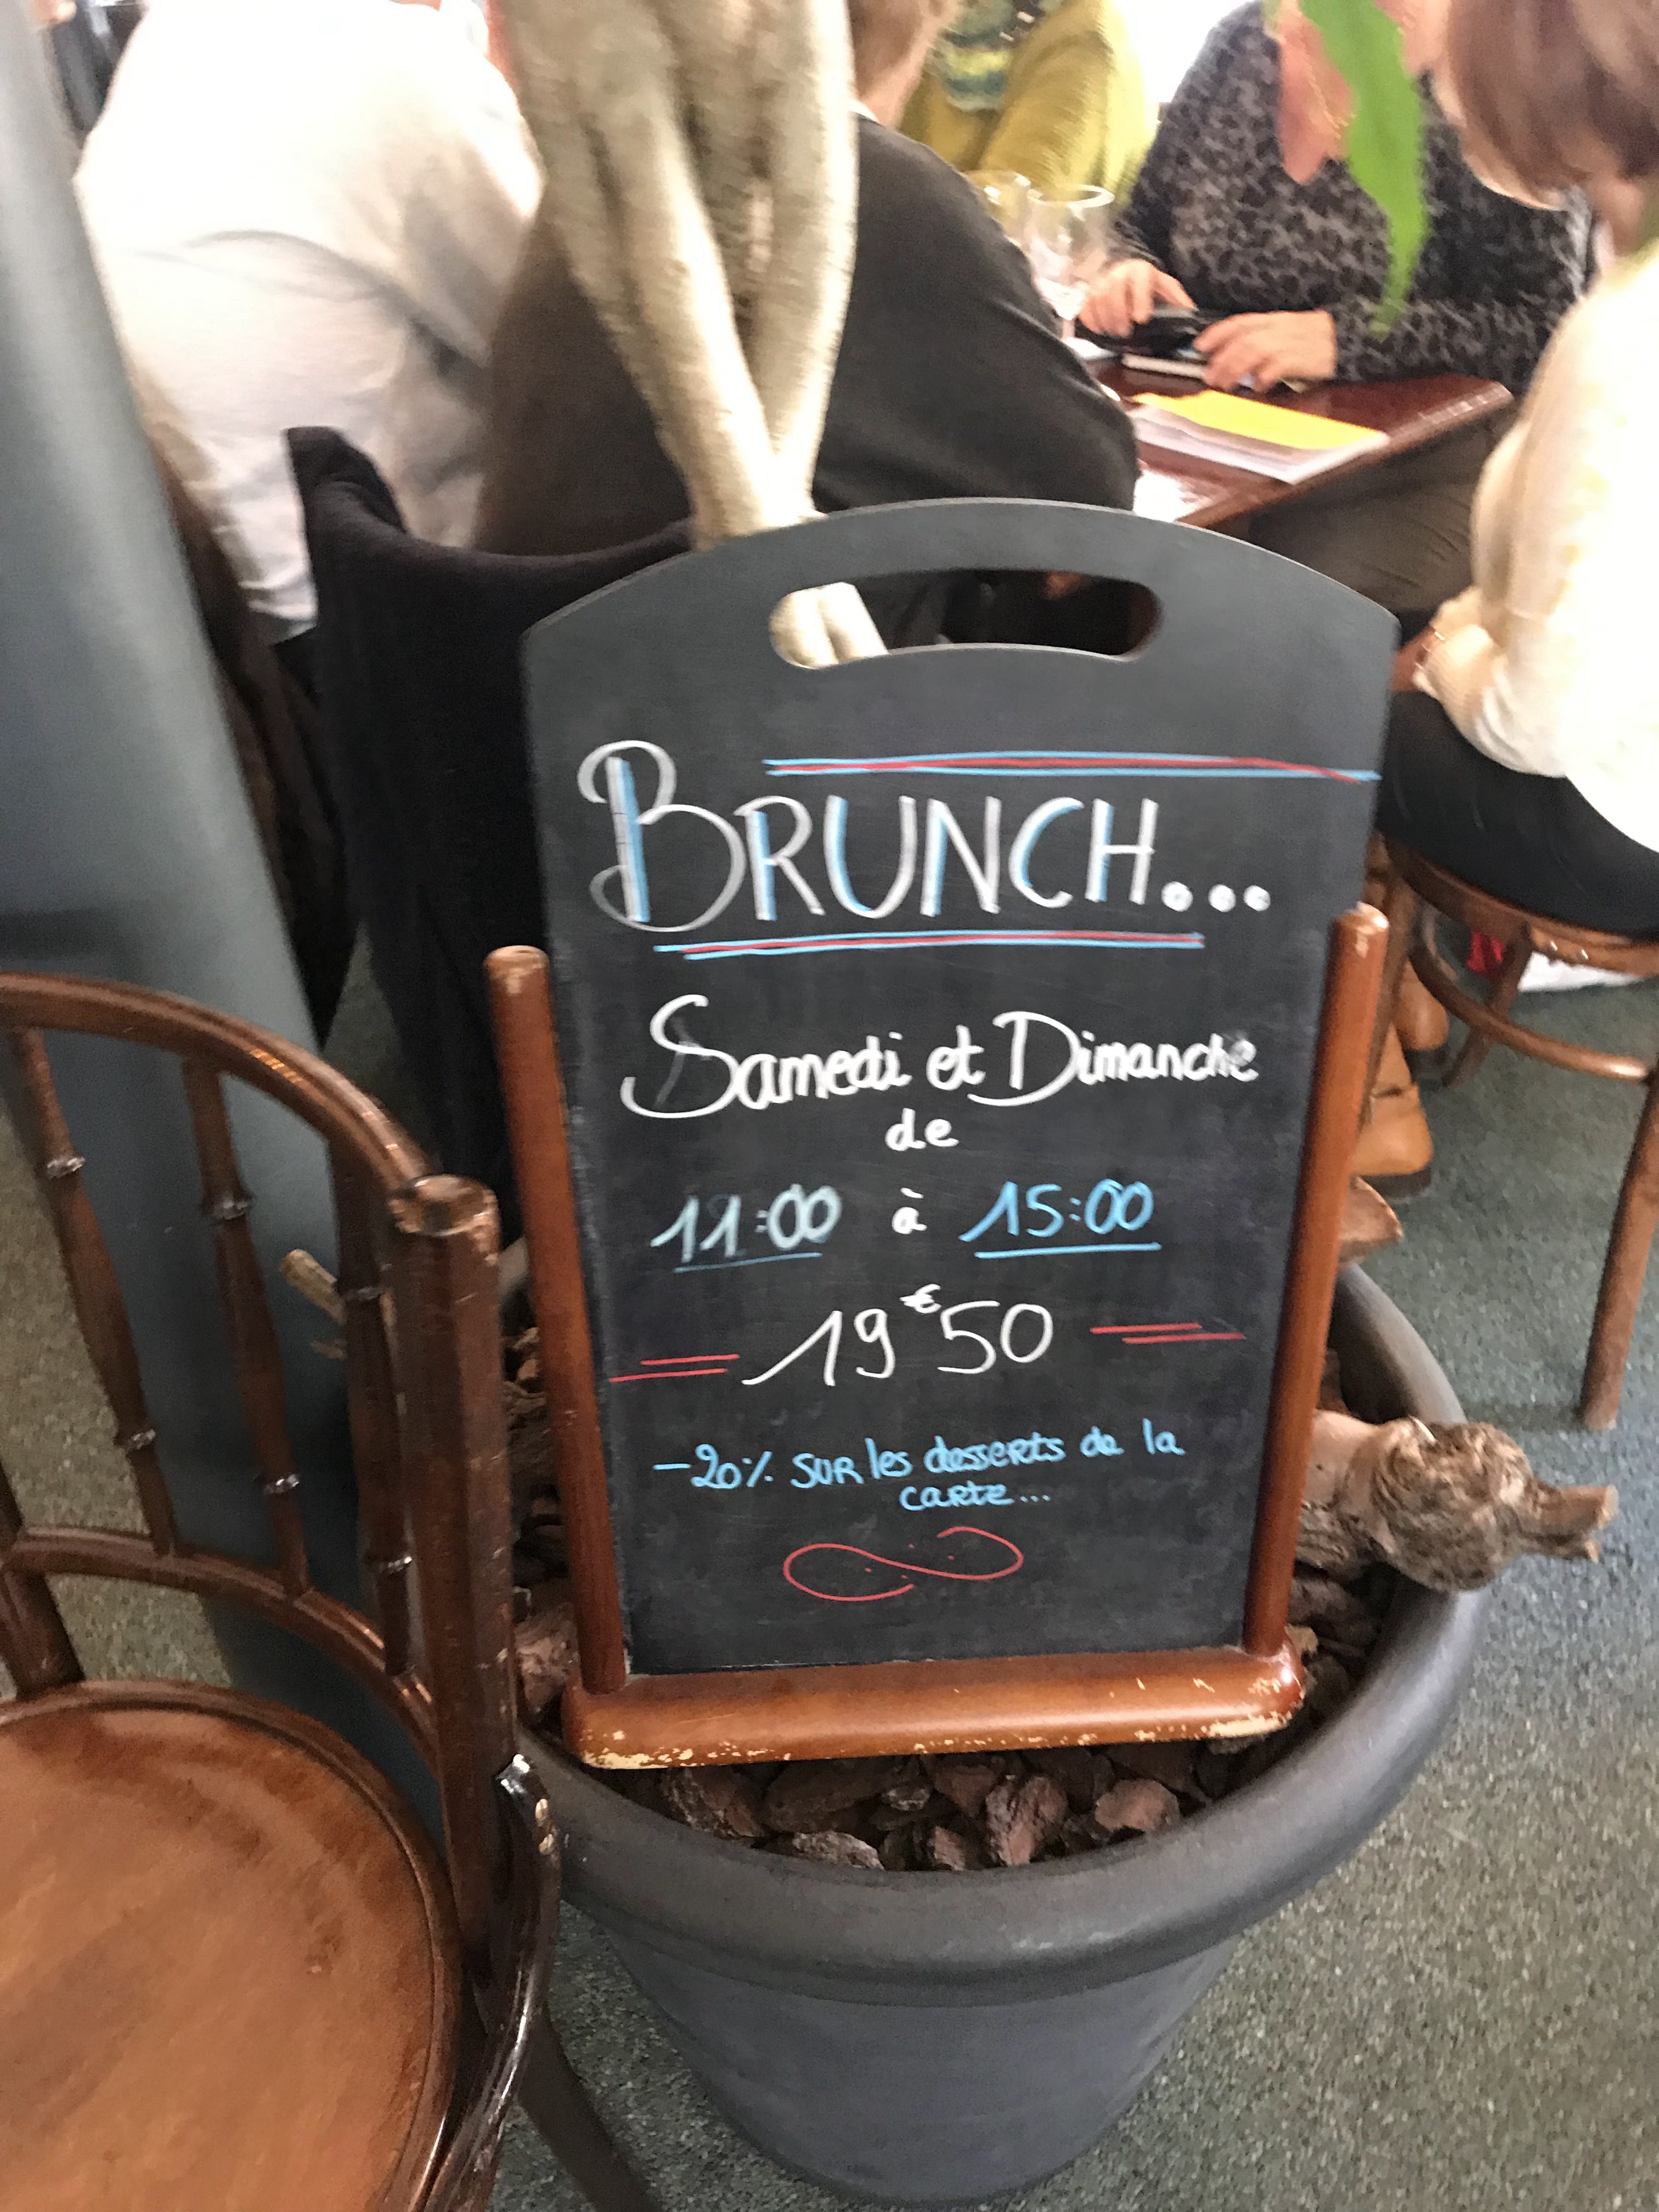 BRUNCH...
Samedi et Dimanche
de
11:00 à 15:00
19€50
-20% sur les desserts de la
carte...